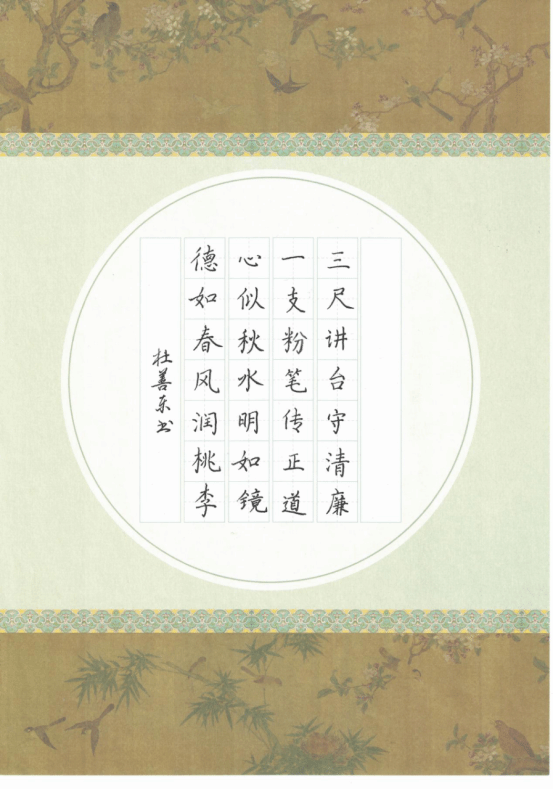 三尺讲台守清廉
一支粉笔传正道
心似秋水明如镜
德如春风润桃李
杜善东书